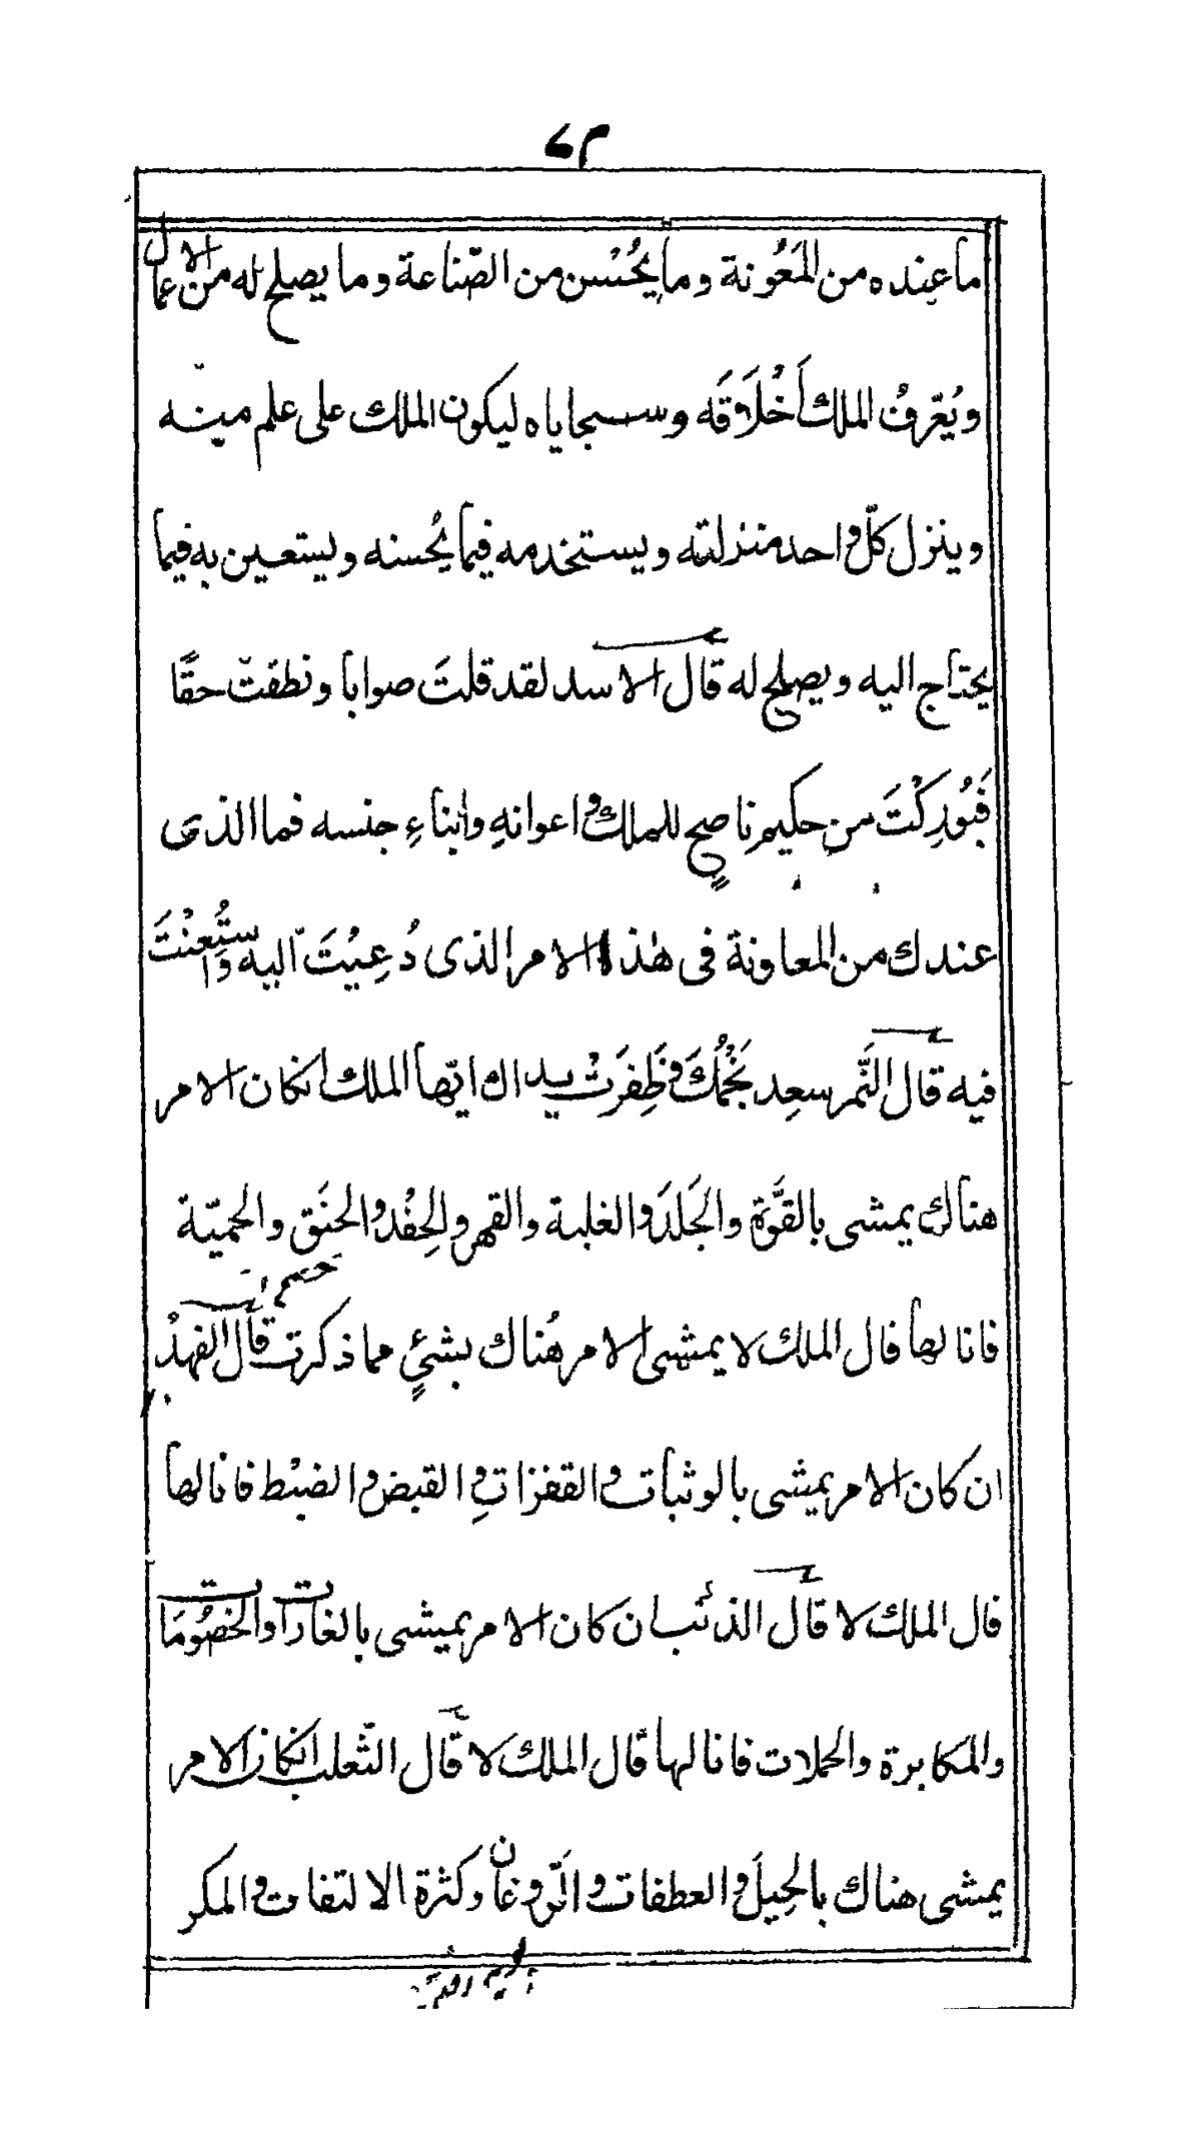 ما عنده من المَعُونة وما يُحْسن من الصّناعة وما يصلح له من الاعمال
ويُعرّفُ الملك اَخْلَاقَه وسجاياه ليكون الملك على علم مينّه
وينزل كلّ واحد منزلته ويستخدمه فيما يُحسنه ويستعين به فيما
يحتاج اليه ويصلح له قال الاسد لقد قلتَ صوابا ونطقتّ حقًّا
فَبُوْرِكْتَ من حكيم ناصحٍ للملك واعوانهِ وابناءِ جنسه فما الذى
عندك من المعاونة فى هذا الامر الذى دُعِيْتَ اليه واسْتُعِنْتَ
فيه قال النَّمر سعِد نَجْمُكَ وظَفِرَتْ يداك ايّها الملك انكان الامر
هناك يمشى بالقوَّة والجَلَد والغلبة والقهر والحِقْد والحنَق والحميّة
فانا لها قال الملك لا يمشى الامر هُناك بشئٍ مما ذكرت قال الفهدْ
ان كان الامر يمشى بالوثبات والقفزاتِ والقبض والضبْط فانا لها
قال الملك لا قال الذئب ان كان الامر يمشى بالغارات والخصُومَات
والمكابرة والحملات فانا لها قال الملك لا قال الثّعلب انكان الامر
يمشى هناك بالحِيلَ والعطفات والرّوغان وكثرة الالتفات والمكر